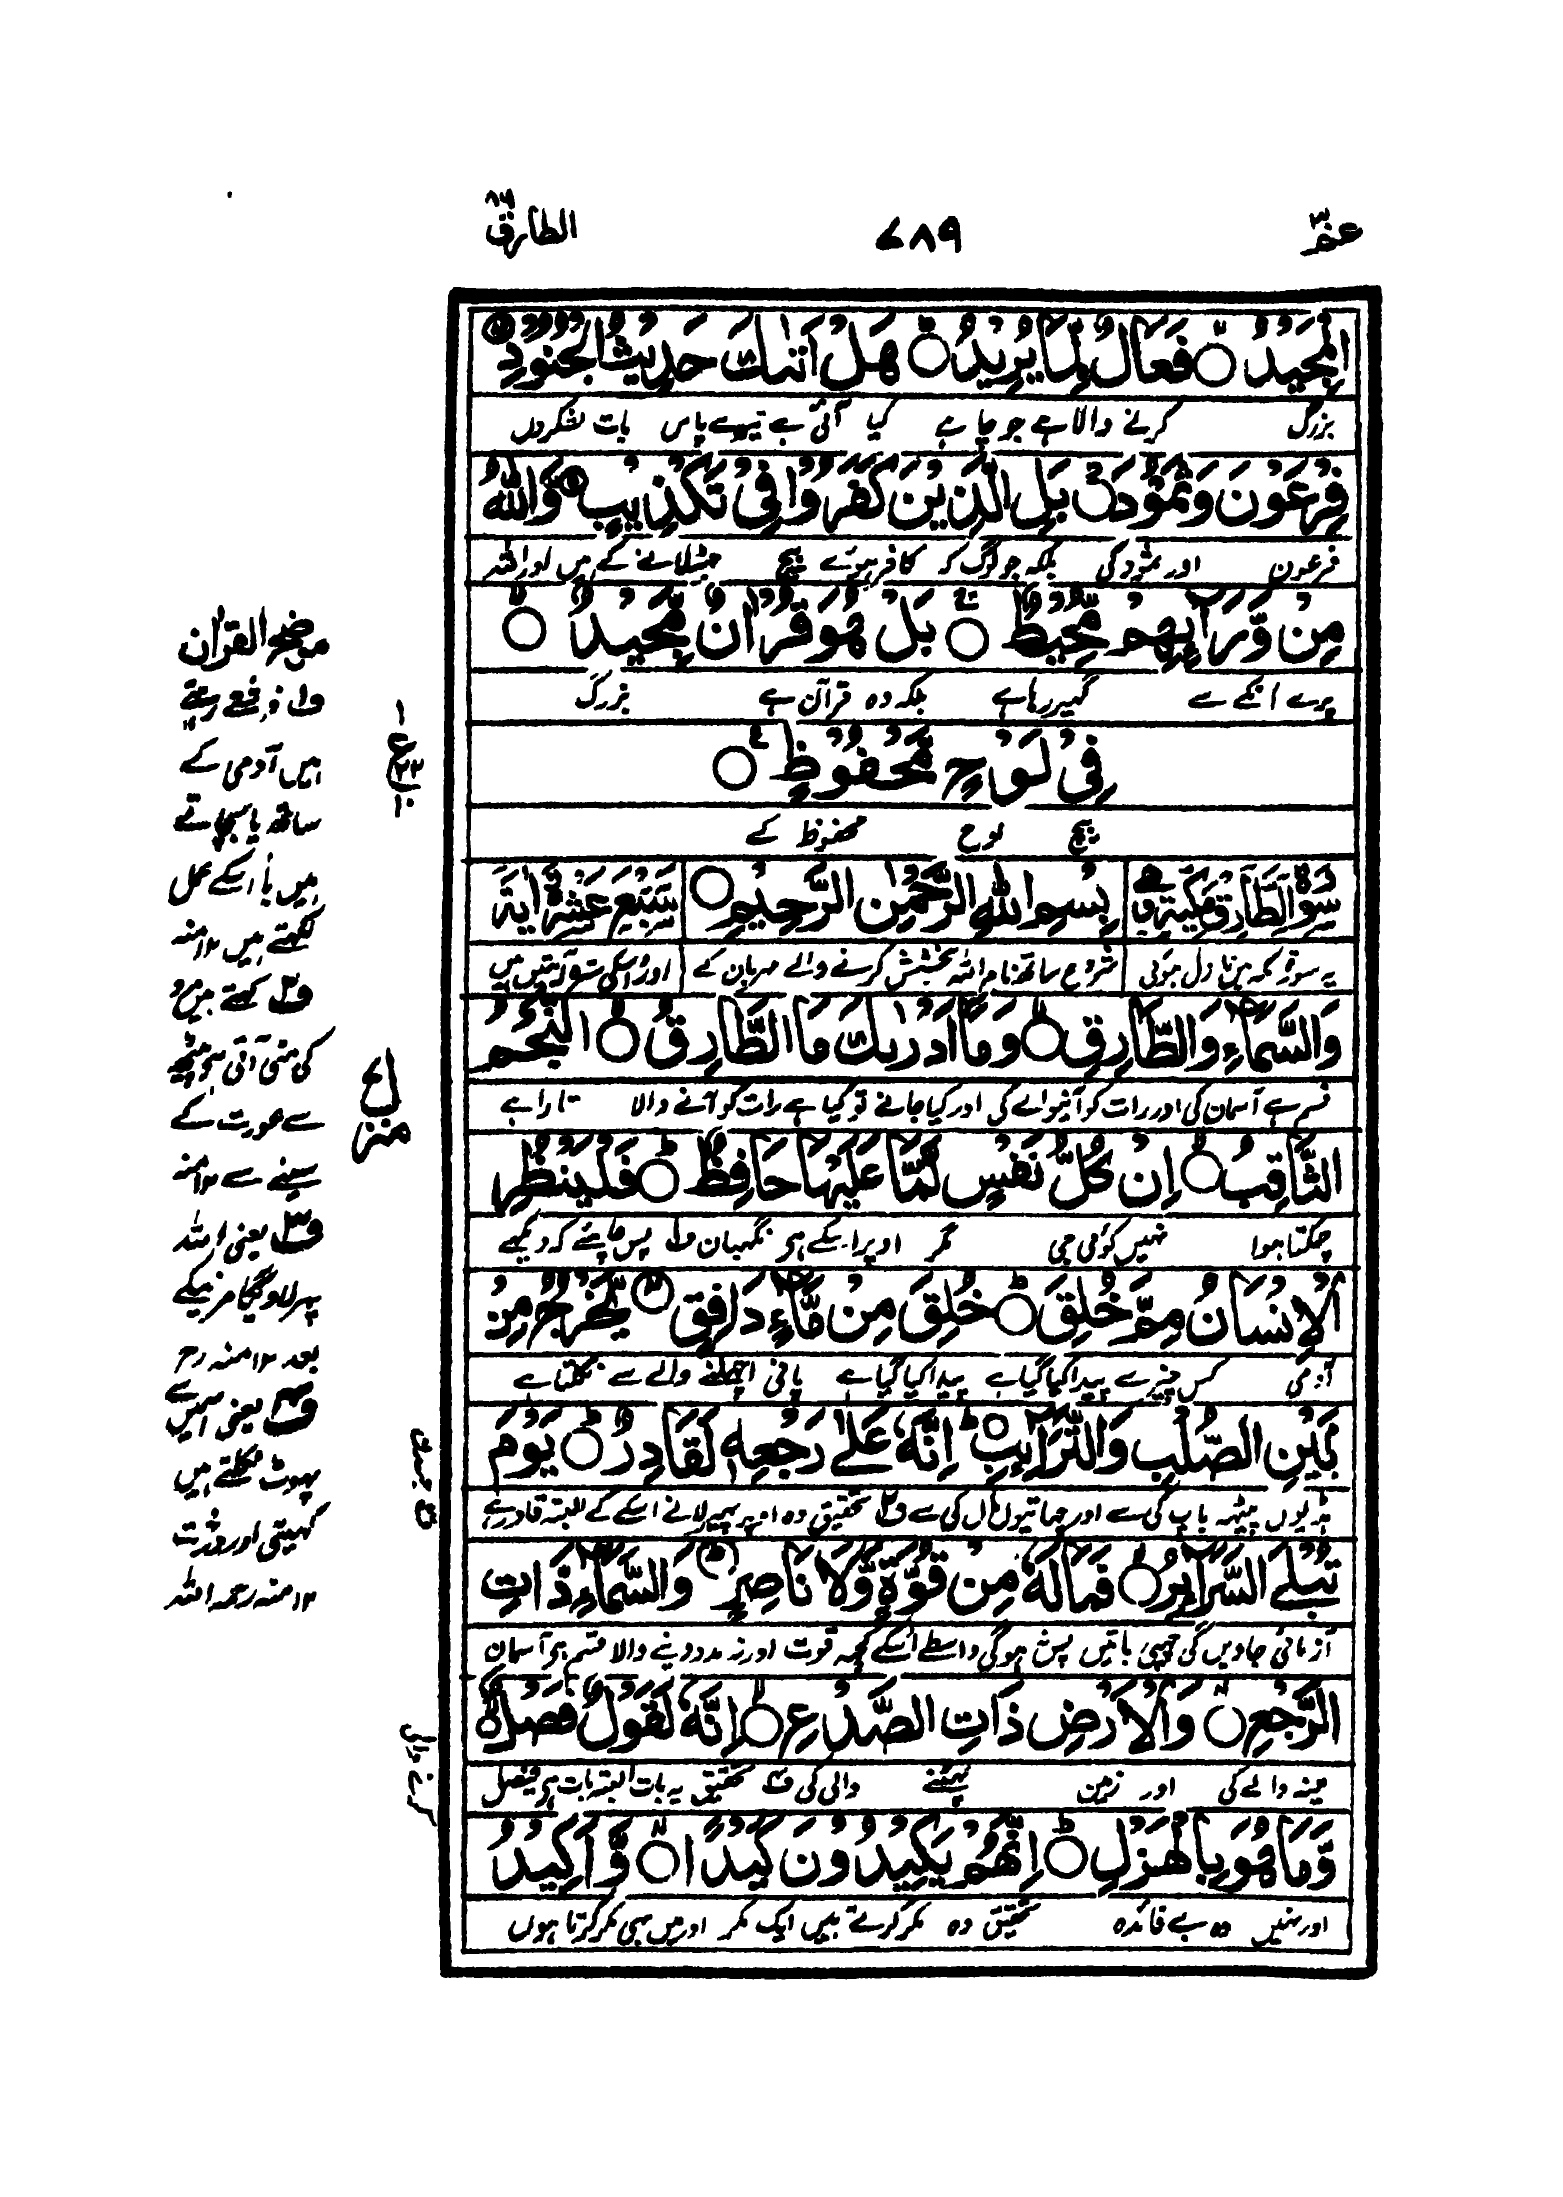 عم ٣٠
٧٨٩
الطارق ٨٦
الْمَجِيْدُ ۙ فَعَّالٌ لِّمَا يُرِيْدُ ؕ هَلْ اَتٰىكَ حَدِيْثُ الْجُنُوْدِ ۙ
بزرگ کرنے والا ہے جو چاہے کیا آئی ہے تیرے پاس بات لشکروں
فِرْعَوْنَ وَثَمُوْدَ ؕ بَلِ الَّذِيْنَ كَفَرُوْا فِيْ تَكْذِيْبٍ ۙ وَّاللّٰهُ
فرعون اور ثمود کی بلکہ جو لوگ کہ کافر ہوئے بیچ جھٹلانے کے ہیں اور اللہ
مِنْ وَّرَآئِهِمْ مُّحِيْطٌ ۚ بَلْ هُوَ قُرْاٰنٌ مَّجِيْدٌ ۙ
پرے انکے سے گھیر رہا ہے بلکہ وہ قرآن ہے بزرگ
فِيْ لَوْحٍ مَّحْفُوْظٍ ۧ
بیچ لوح محفوظ کے
سُوْرَةُ الطَّارِقِ مَكِّيَّةٌ وَّهِيَ بِسْمِ اللّٰهِ الرَّحْمٰنِ الرَّحِيْمِ سَبْعَ عَشْرَةَ اٰيَةً
یہ سورۃ مکہ میں نازل ہوئی شروع ساتھ نام اللہ بخشش کرنے والے مہربان کے اور اسکی سترہ آیتیں ہیں
وَالسَّمَآءِ وَالطَّارِقِ ۙ وَمَآ اَدْرٰىكَ مَا الطَّارِقُ ۙ النَّجْمُ
قسم ہے آسمان کی اور رات کو آنیوالے کی اور کیا جانے تو کیا ہے رات کو آنے والا تارا ہے
الثَّاقِبُ ۙ اِنْ كُلُّ نَفْسٍ لَّمَّا عَلَيْهَا حَافِظٌ ؕ فَلْيَنْظُرِ
چمکتا ہوا نہیں کوئی جی مگر اوپر اسکے ہے نگہبان ف۱ پس چاہئے کہ دیکھے
الْاِنْسَانُ مِمَّ خُلِقَ ؕ خُلِقَ مِنْ مَّآءٍ دَافِقٍ ۙ يَّخْرُجُ مِنْ
آدمی کس چیز سے پیدا کیا گیا ہے پیدا کیا گیا ہے پانی اچھلنے والے سے نکلتا ہے
بَيْنِ الصُّلْبِ وَالتَّرَآئِبِ ؕ اِنَّهٗ عَلٰى رَجْعِهٖ لَقَادِرٌ ؕ يَوْمَ
ہڈیوں پیٹھ باپ کی سے اور چھاتیوں ماں کی سے ف۲ تحقیق وہ اوپر پھیر لانے اسکے کے البتہ قادر ہے
تُبْلَى السَّرَآئِرُ ۙ فَمَا لَهٗ مِنْ قُوَّةٍ وَّلَا نَاصِرٍ ؕ وَالسَّمَآءِ ذَاتِ
آزمائی جاویں گی چھپی باتیں پس نہ ہوگی واسطے اسکے کچھ قوت اور نہ مدد دینے والا قسم ہے آسمان
الرَّجْعِ ۙ وَالْاَرْضِ ذَاتِ الصَّدْعِ ۙ اِنَّهٗ لَقَوْلٌ فَصْلٌ ۙ
مینہ والے کی اور زمین پھٹنے والی کی ف۴ تحقیق یہ بات البتہ بات ہے فیصل
وَّمَا هُوَ بِالْهَزْلِ ؕ اِنَّهُمْ يَكِيْدُوْنَ كَيْدًا ۙ وَّاَكِيْدُ
اور نہیں وہ بے فائدہ تحقیق وہ مکر کرتے ہیں ایک مکر اور میں بھی مکر کرتا ہوں
موضح القرآن
ہیں آدمی کے
ساتھ یا بچاتے
ہیں یا اسکے عمل
لکھتے ہیں ١٢ منہ
ف۲ کہتے ہیں مرد
کی منی آتی ہے پیٹھ
سے عورت کے
سینے سے ١٢ منہ
ف۳ یعنی اللہ
پھر لاویگا مرنیکے
بعد ١٢ منہ رح
ف۴ یعنی اسمیں سے
پھوٹ نکلتے ہیں
کھیتی اور درخت
١٢ منہ رحمہ اللہ
ع
منزل ٧
کرنے والی